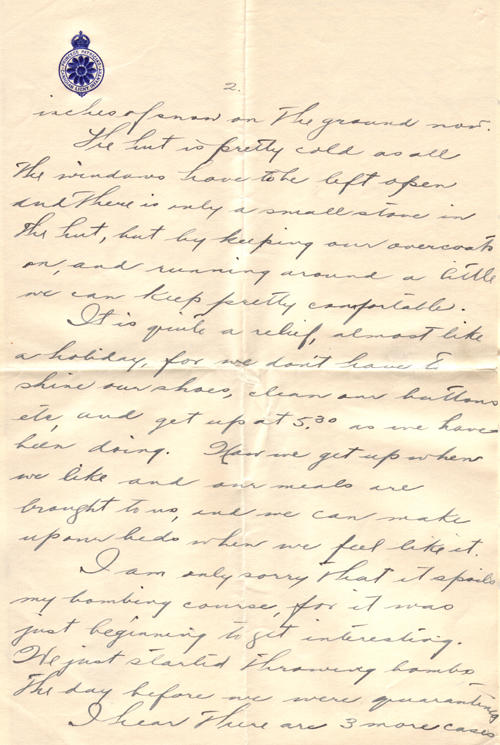 2.
inches of snow on the ground now.
The hut is pretty cold as all
the windows have to be left open
and there is only a small stove in
the hut, but by keeping our overcoats
on, and running around a little
we can keep pretty comfortable.
It is quite a relief, almost like
a holiday, for we don't have to
shine our shoes, clean our buttons
etc, and get up at 5.30 as we have
been doing. Now we get up when
we like and our meals are
brought to us, and we can make
up our beds when we feel like it.
I am only sorry that it spoils
my bombing course, for it was
just beginning to get interesting.
We just started throwing bombs
the day before we were
I hear there are 3 more cases